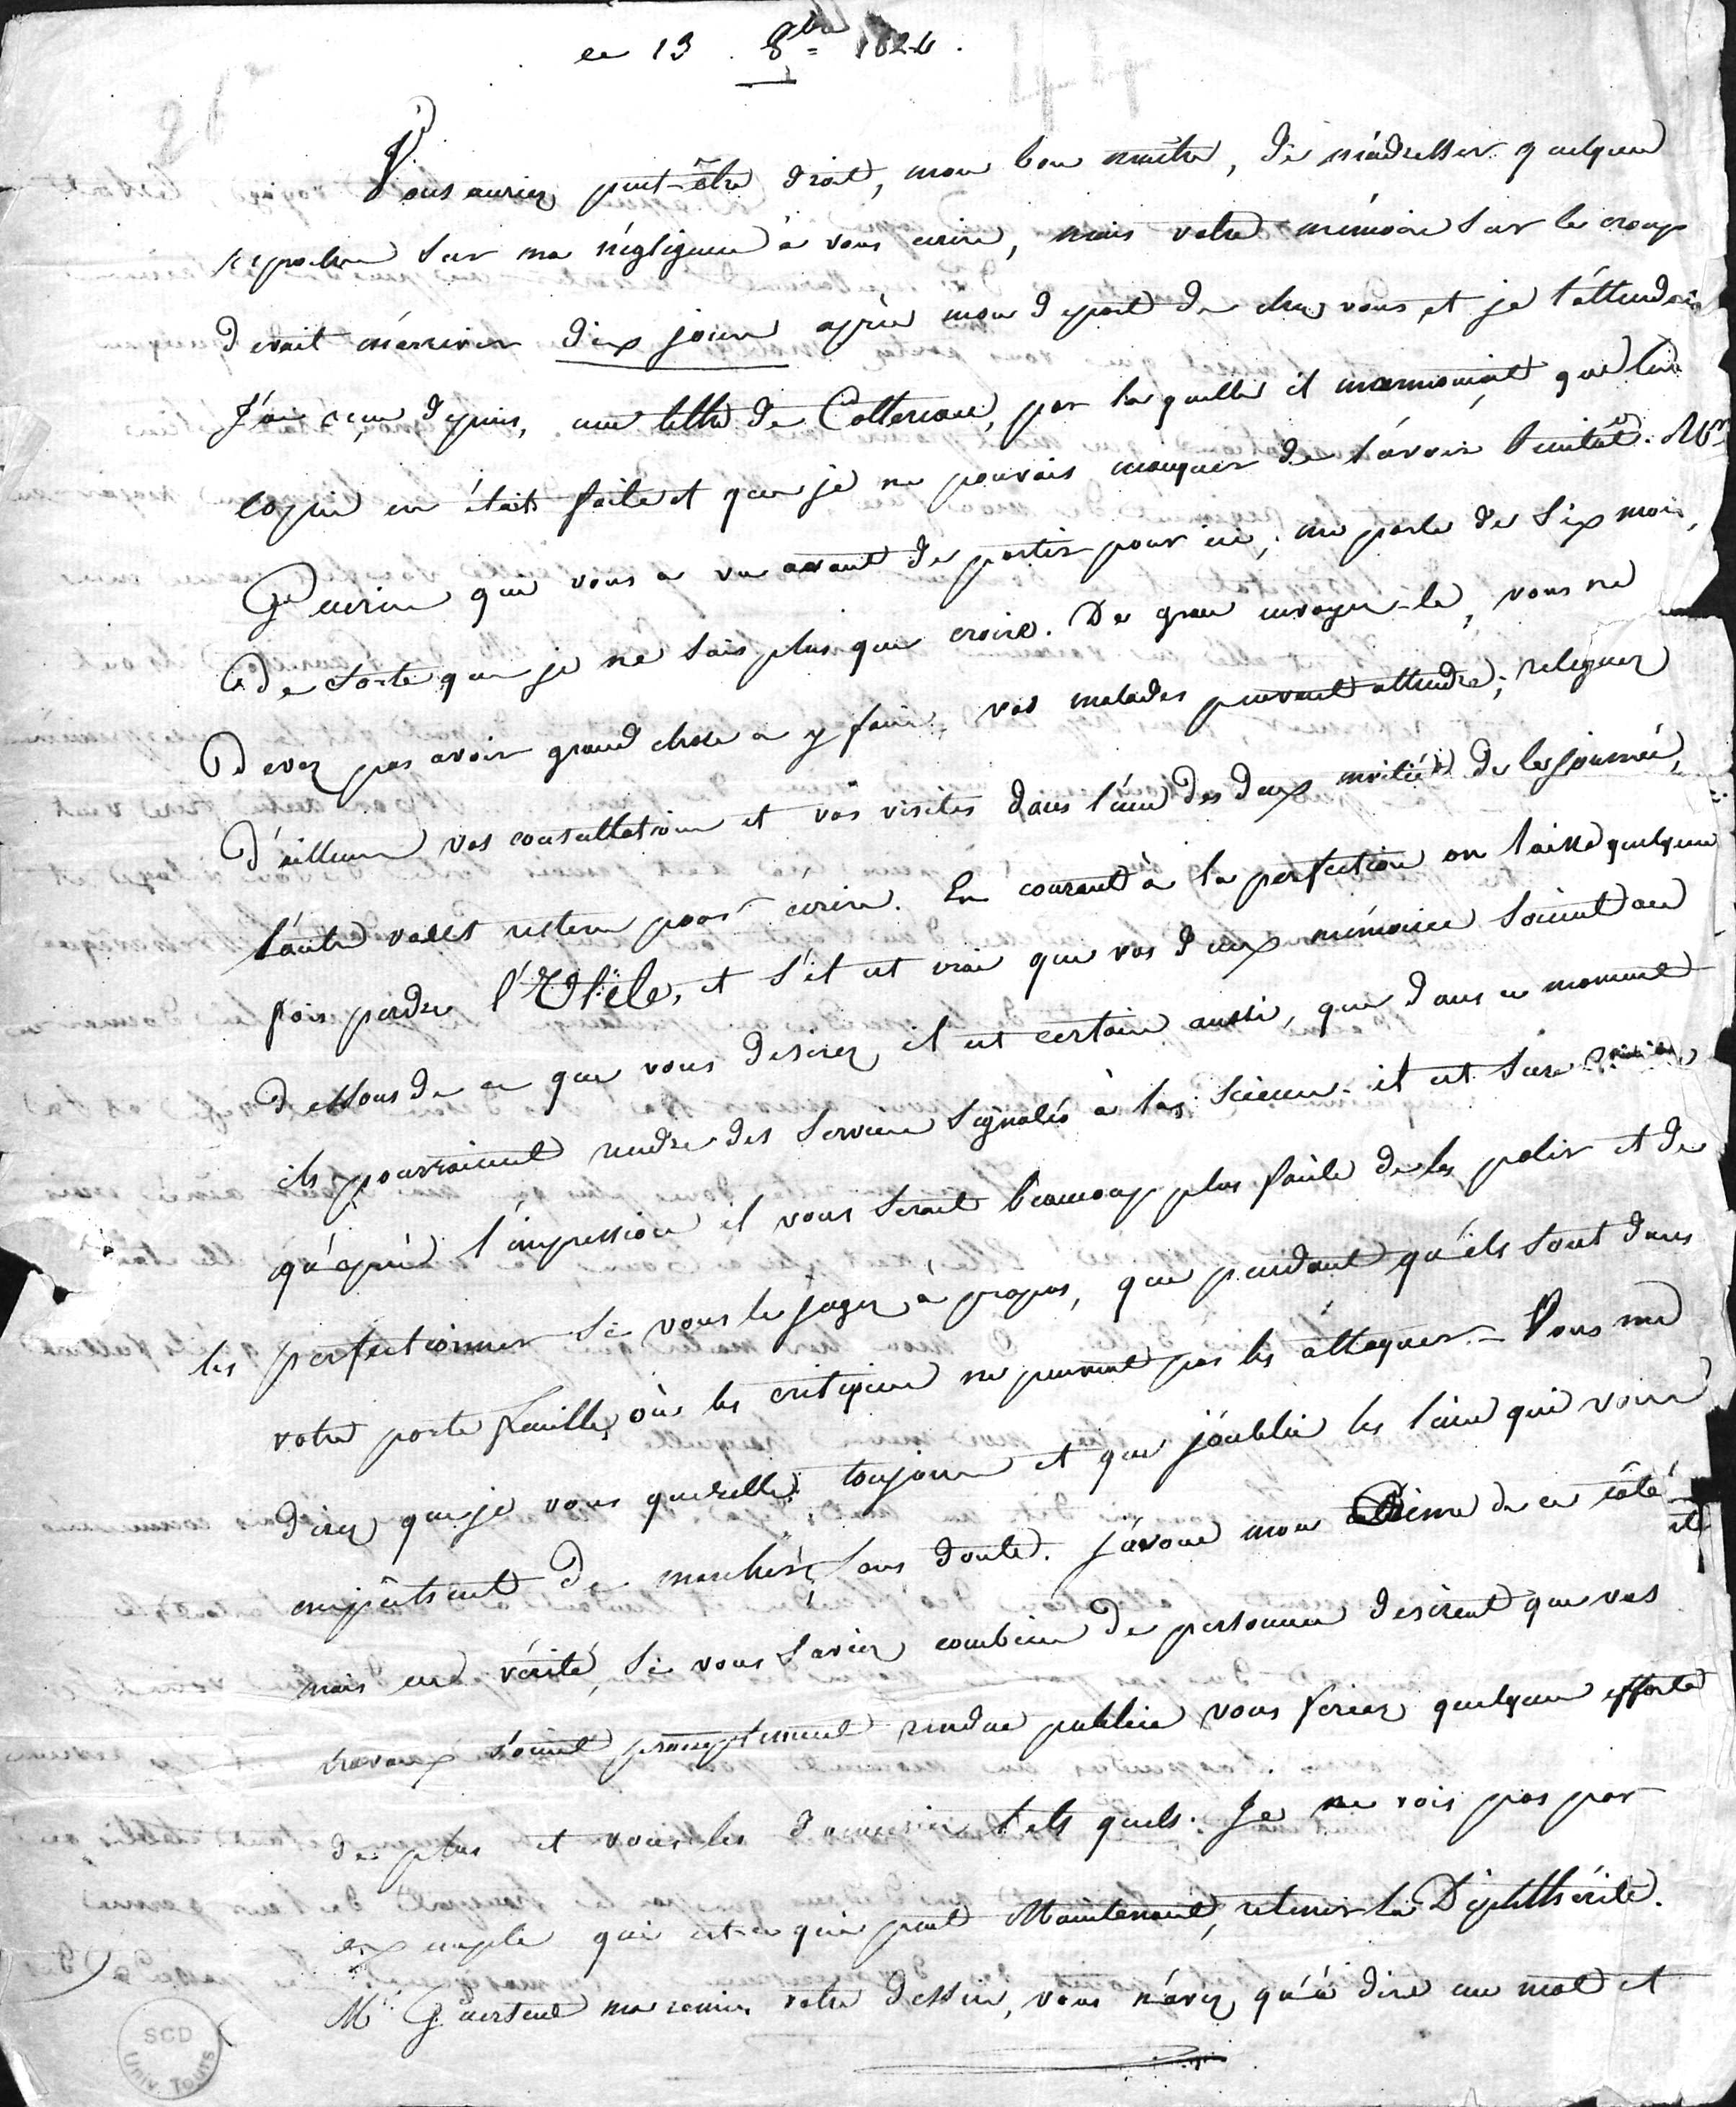 le 13 8bre 1824.
Vous auriez peut-être droit, mon bon maître, de m'adresser quelques
reproches sur ma négligence à vous écrire, mais votre mémoire sur le croup
devait m'arriver dix jours après mon départ de chez vous et je l'attendois
J'ai reçu depuis, une lettre de Cottereau, par laquelle il m'annonçait que la
copie en était faite et que je ne pouvais manquer de l'avoir bientôt. Mr
Guerin qui vous a vu avant de partir pour ici, me parle de six mois,
de sorte que je ne sais plus que croire. De grace envoyez-le, vous ne
devez pas avoir grand chose à y faire, vos malades peuvent attendre; releguez
d'ailleurs vos consultations et vos visites dans l'une des deux moitiés de la journée,
l'autre vous restera pour écrire. En courant à la perfection on laisse quelques
fois perdre l'Utile, et s'il est vrai que vos deux mémoires soient au
dessous de ce que vous desirez, il est certain aussi, que dans ce moment
ils pourraient rendre des services signalés à la science. il est sur
qu'après l'impression il vous serait beaucoup plus facile de les polir et de
les perfectionner si vous le jugez à propos, que pendant qu'ils sont dans
votre porte feuille, où les critiques ne peuvent pas les attaquer – Vous me
direz que je vous querelle toujours et que j'oublie les liens qui vous
empêchent de marcher, sans doute. J'avoue mon crime de ce côté
mais en vérité, si vous saviez combien de personnes desirent que vos
travaux soient promptement rendus publics vous feriez quelques efforts
de plus et vous les donneriez tels quels. Je ne vois pas par
exemple qui est-ce qui peut Maintenant, retenir la Diphthérite.
Mr Guersent m'a remis votre dessin, vous n'avez qu'à dire un mot et
SCD
Univ. Tours